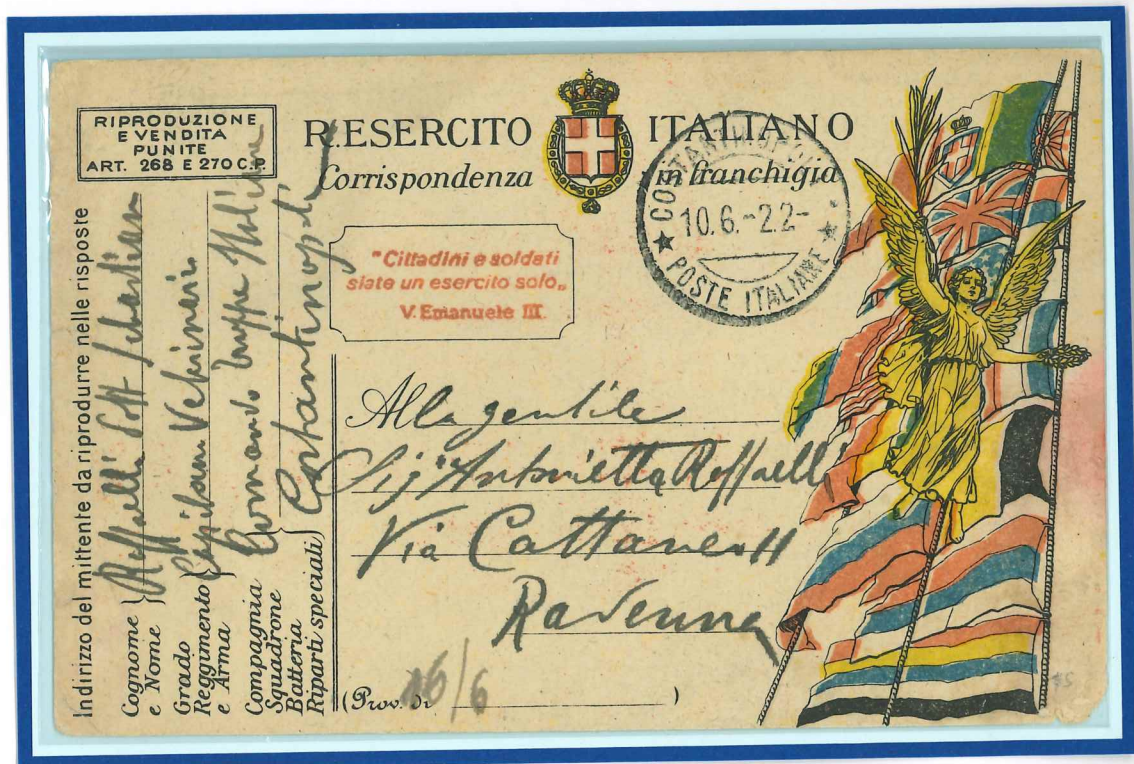 RIPRODUZIONE
E VENDITA
PUNITE
ART. 268 E 270 C.P.
R. ESERCITO ITALIANO
Corrispondenza in franchigia
COSTANTINOPOLI
10.6.-22-
★ POSTE ITALIANE ★
"Cittadini e soldati
siate un esercito solo„
V. Emanuele III.
Indirizzo del mittente da riprodurre nelle risposte
Cognome e Nome } Raffaelli Dott
Grado Reggimento e Arma } Capitano Veterinario
Compagnia Squadrone Batteria Riparti speciali } Comando Truppe
Costantinopoli
Alla gentile
Sig Antonietta Raffaelli
Via Cattaneo 11
Ravenna
(Prov. di )
16/6
45